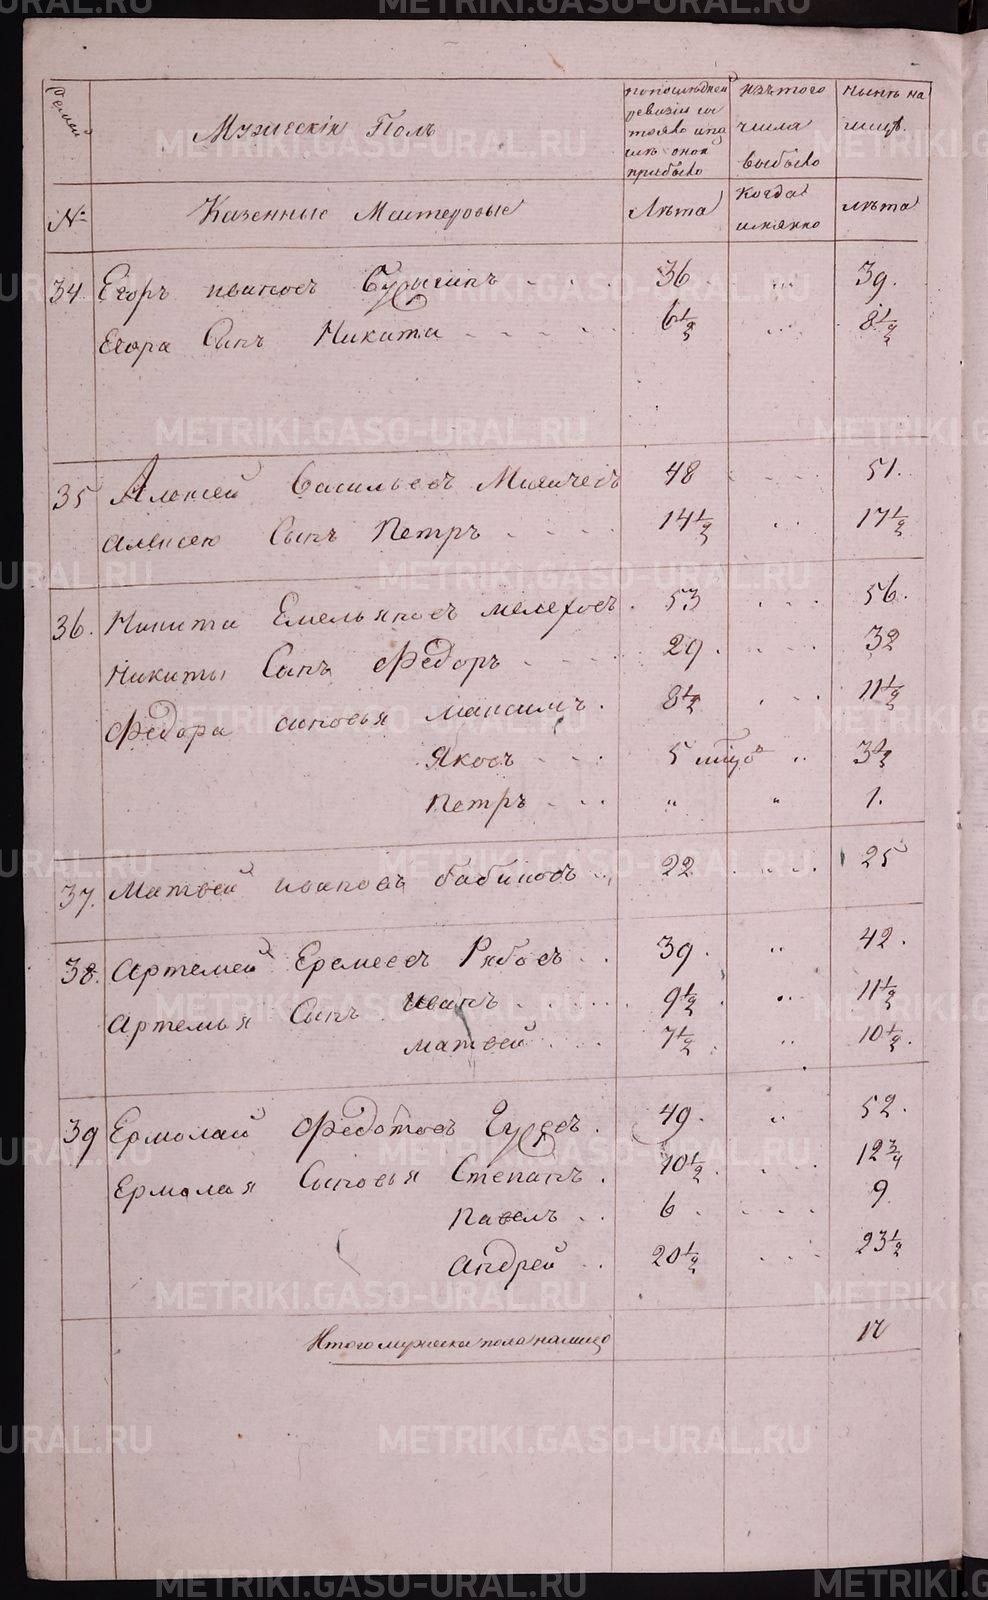 METRIKI.GASO-URAL.RU
Семей
Мужескій Полъ
по последней ревизіи со
тояло и по
слѣ оной
прибыло
изъ того
числа
выбыло
Нынѣ на
лицѣ.
№
Казенные Мастеровые
Лѣта
Когда
именно
лѣта
34. Егоръ ивановъ 36 39.
Егора Сынъ Никита 6½ 8½
35 Алексей Васильевъ 48 51.
Алексею Сынъ Петръ 14½ 17½
36. Никита Емельяновъ мелеховъ 53 56.
Никиты Сынъ Федоръ 29 32
Федора сыновья Максимъ 8½ 11½
Яковъ 5 3½
Петръ " " 1.
37. Матвей ивановъ бабиновъ 22 25
38. Артемей Еремеевъ Рябовъ 39 " 42.
Артемья Сынъ иванъ 9½ 11½
матвей 7½ 10½
39 Ермолай Федотовъ Гуревъ 49. 52.
Ермолая Сыновья Степанъ 10½ 12¾
Павелъ 6 9
Андрей 20½ 23½
Итого мужеска пола налицо 17